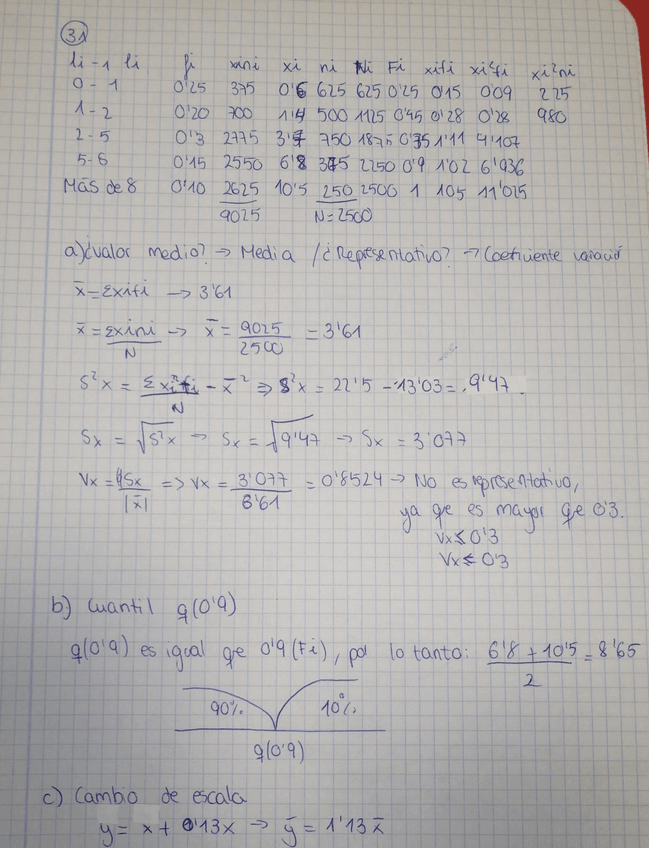 31
li-1 li fi xini xi ni Ni Fi xifi xi²fi xi²ni
0-1 0'25 375 0'6 625 625 0'25 0'15 0'09 225
1-2 0'20 700 1'4 500 1125 0'45 0'28 0'28 980
2-5 0'3 2775 3'7 750 1875 0'75 1'11 4'107
5-8 0'15 2550 6'8 375 2250 0'9 1'02 6'936
Más de 8 0'10 2625 10'5 250 2500 1 105 11'025
9025 N=2500
a) ¿valor medio? → Media / ¿Representativo? → Coeficiente variació
x̄ = Σxifi → 3'61
x̄ = Σxini / N → x̄ = 9025 / 2500 = 3'61
S²x = Σxi²fi / N - x̄² ⇒ S²x = 22'5 - 13'03 = 9'47
Sx = √S²x → Sx = √9'47 → Sx = 3'077
Vx = Sx / |x̄| => Vx = 3'077 / 3'61 = 0'8524 → No es representativo,
ya qe es mayor qe 0'3.
Vx ≤ 0'3
Vx ≤ 0'3
b) Cuantil q(0'9)
q(0'9) es igual qe 0'9 (Fi), por lo tanto: 6'8 + 10'5 / 2 = 8'65
90% 10%
q(0'9)
c) Cambio de escala
y = x + 0'13x → ȳ = 1'13x̄